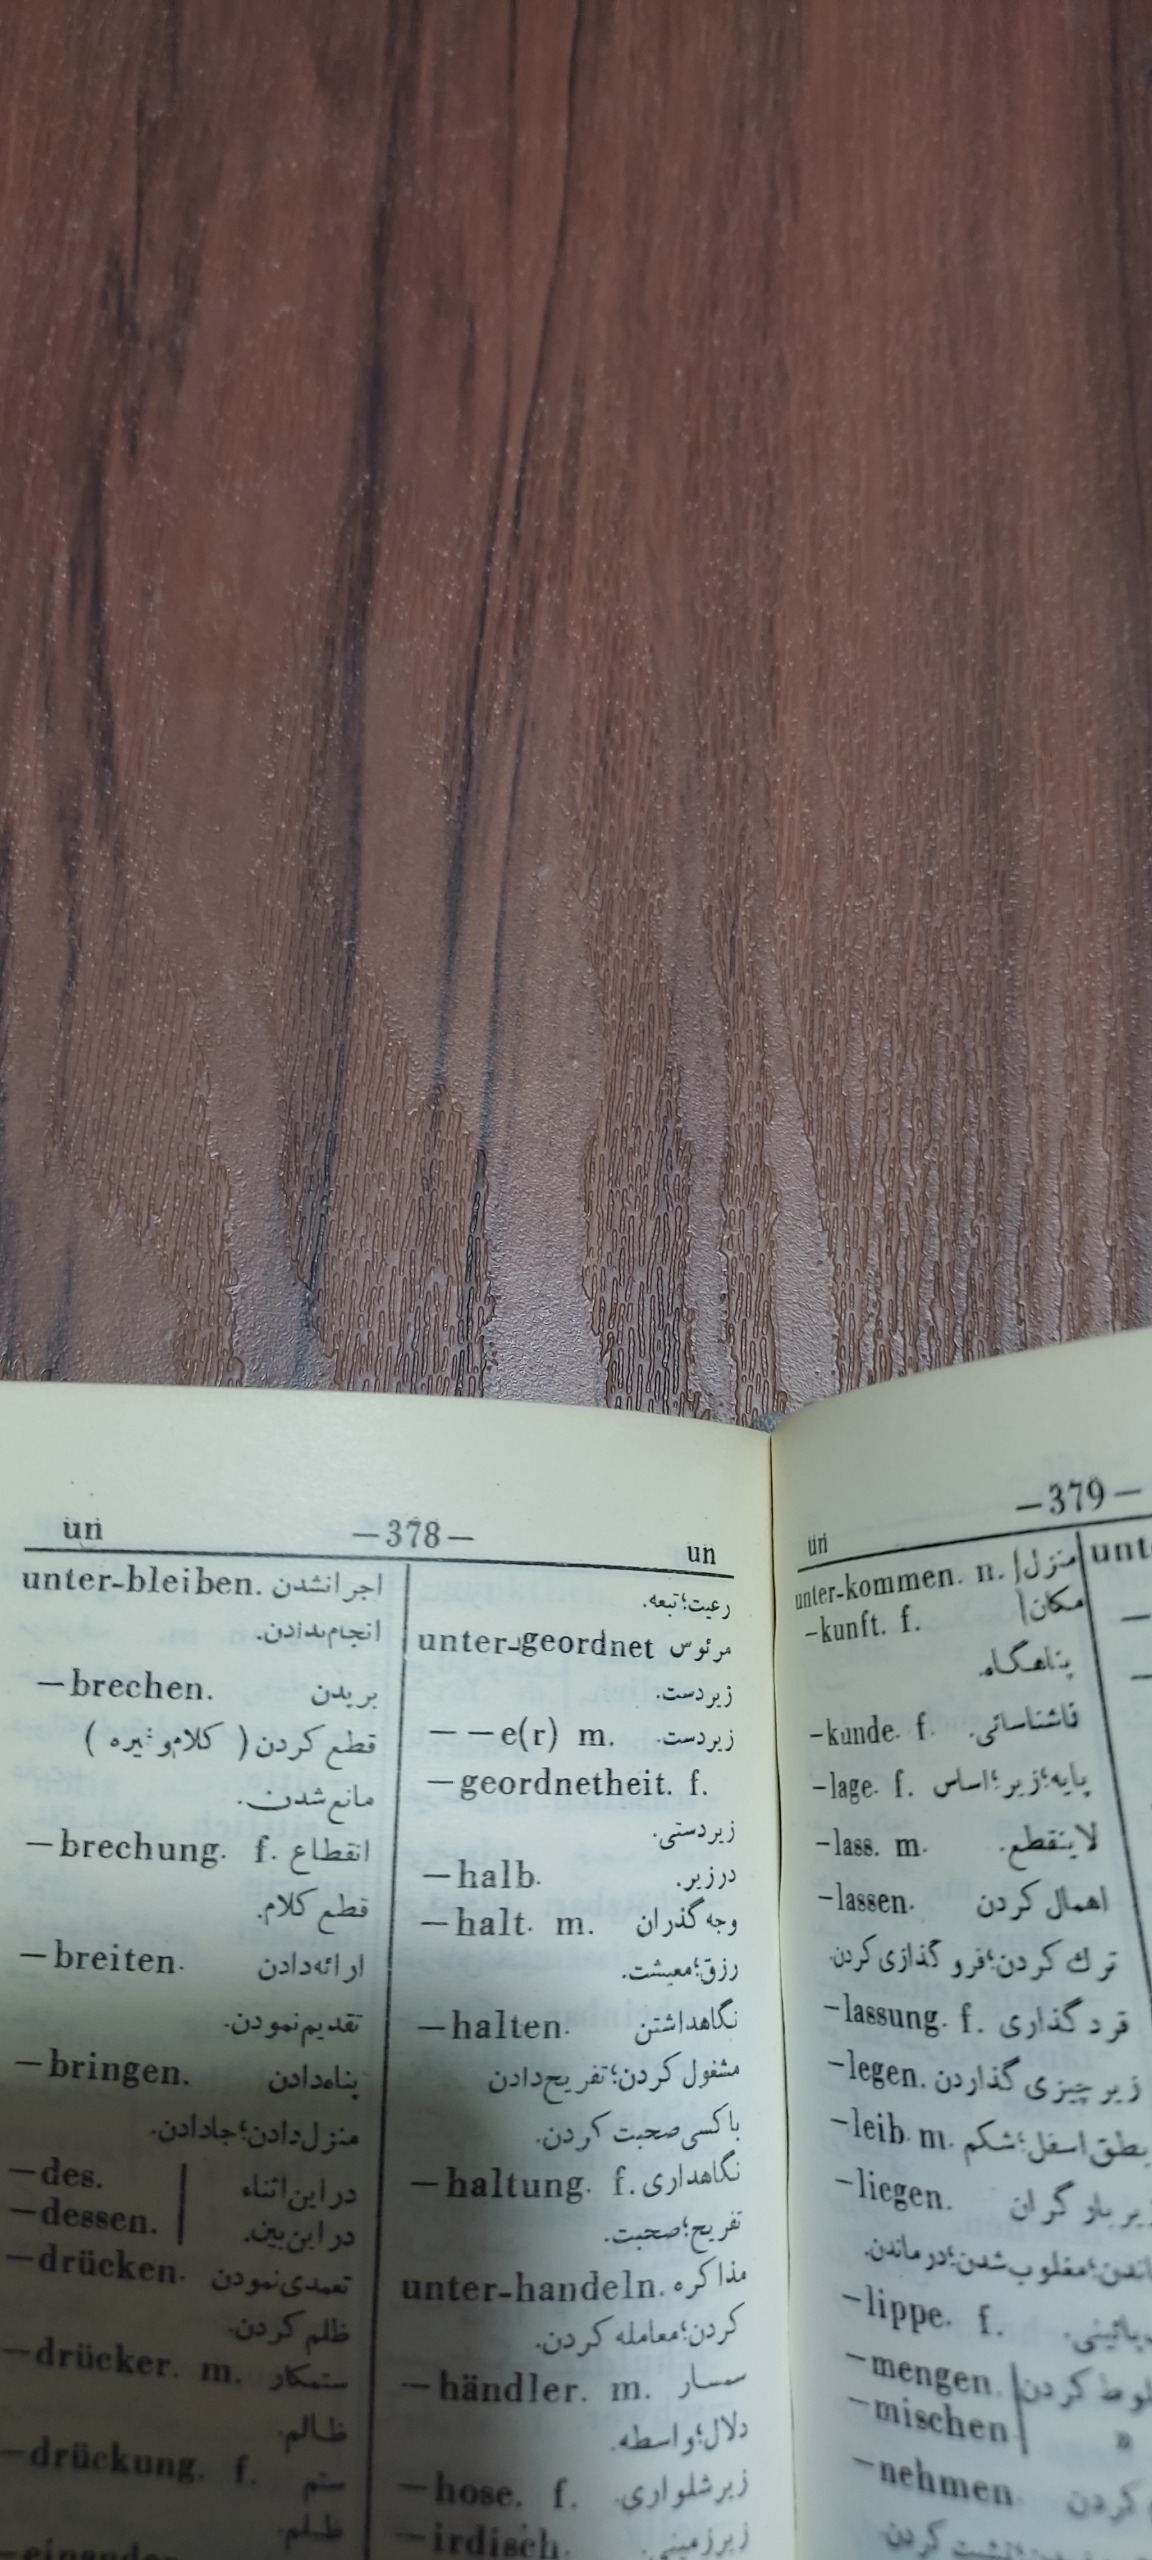 un —378— un
unter-bleiben. اجرانشدن
انجام ندادن.
—brechen. بریدن
قطع کردن ( کلام وغیره )
مانع شدن.
—brechung. f. انقطاع
قطع کلام.
—breiten. ارائه دادن
تقدیم نمودن.
—bringen. پناه دادن
منزل دادن؛ جا دادن.
—des. در این اثناء
—dessen. در این بین.
—drücken. تعدی نمودن
ظلم کردن.
—drücker. m. ستمکار
ظالم.
—drückung. f. ستم
ظلم.
رعیت؛ تبعه.
unter-geordnet مرئوس
زیردست.
— —e(r) m. زیردست.
—geordnetheit. f.
زیردستی.
—halb. درزیر.
—halt. m. وجه گذران
رزق؛ معیشت.
—halten. نگاهداشتن
مشغول کردن؛ تفریح دادن
باکسی صحبت کردن.
—haltung. f. نگاهداری
تفریح؛ صحبت.
unter-handeln. مذاکره
کردن؛ معامله کردن.
—händler. m. سمسار
دلال؛ واسطه.
—hose. f. زیرشلواری.
—irdisch. زیرزمینی.
un —379—
unter-kommen. n. منزل
-kunft. f. مکان
پناهگاه.
-kunde. f.
-lage. f. پایه؛ زیر؛ اساس
-lass. m. لاینقطع.
-lassen. اهمال کردن
ترك کردن؛ فرو گذاری کردن.
-lassung. f. گذاری
-legen. زیر چیزی گذاردن
-leib. m. اسفل؛ شکم
-liegen. زیر بار گران
مغلوب شدن؛ درماندن.
-lippe. f.
-mengen. کردن
-mischen »
-nehmen. کردن
کردن.